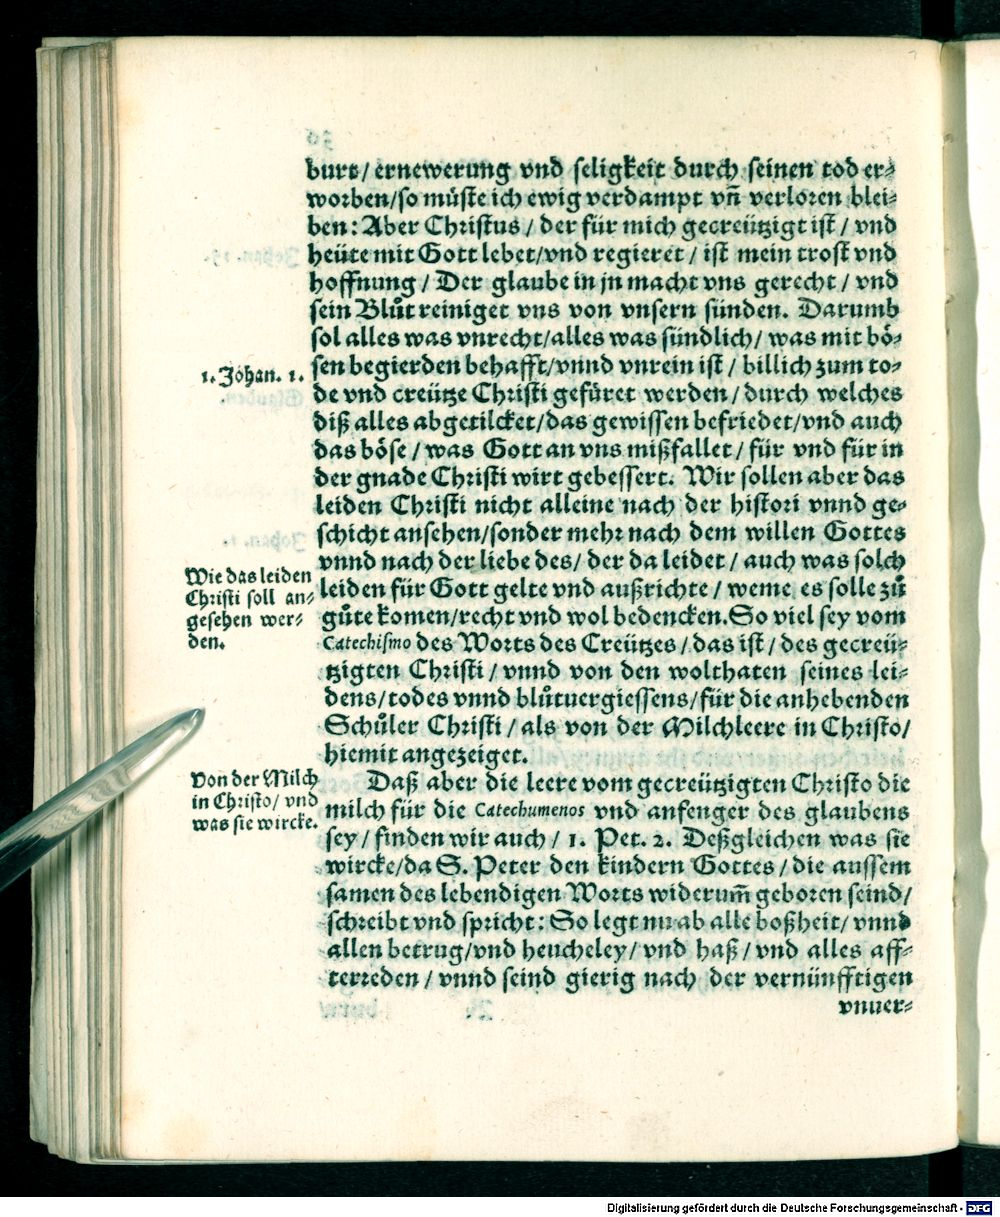 burt/ ernewerung vnd seligkeit durch seinen tod er⸗
worben/so müste ich ewig verdampt vn̄ verloren blei⸗
ben: Aber Christus/ der für mich gecreützigt ist/ vnd
heüte mit Gott lebet/vnd regieret/ ist mein trost vnd
hoffnung/ Der glaube in jn macht vns gerecht/ vnd
sein Blůt reiniget vns von vnsern sünden. Darumb
sol alles was vnrecht/alles was sündlich/ was mit bö⸗
sen begierden behafft/vnnd vnrein ist/ billich zum to⸗
1. Johan. 1.
de vnd creütze Christi gefüret werden/ durch welches
diß alles abgetilcket/das gewissen befriedet/vnd auch
das böse/ was Gott an vns mißfallet/ für vnd für in
der gnade Christi wirt gebessert. Wir sollen aber das
leiden Christi nicht alleine nach der histori vnnd ge⸗
schicht ansehen/sonder mehr nach dem willen Gottes
vnnd nach der liebe des/ der da leidet/ auch was solch
leiden für Gott gelte vnd außrichte/ weme es solle zů
gůte komen/recht vnd wol bedencken. So viel sey vom
Catechismo des Worts des Creützes/ das ist/ des gecreü⸗
tzigten Christi/ vnnd von den wolthaten seines lei⸗
dens/todes vnnd blůtuergiessens/für die anhebenden
Schůler Christi/ als von der Milchleere in Christo/
hiemit angezeiget.
Wie das leiden
Christi soll an⸗
gesehen wer⸗
den.
Daß aber die leere vom gecreützigten Christo die
milch für die Catechumenos vnd anfenger des glaubens
sey/ finden wir auch/ 1. Pet. 2. Deßgleichen was sie
wircke/da S. Peter den kindern Gottes/ die aussem
samen des lebendigen Worts widerum̄ geboren seind/
schreibt vnd spricht: So legt nu ab alle boßheit/ vnnd
allen betrug/vnd heucheley/ vnd haß/ vnd alles aff⸗
terreden/ vnnd seind gierig nach der vernünfftigen
Von der Milch
in Christo/ vnd
was sie wircke.
vnuer⸗
Digitalisierung gefördert durch die Deutsche Forschungsgemeinschaft - DFG